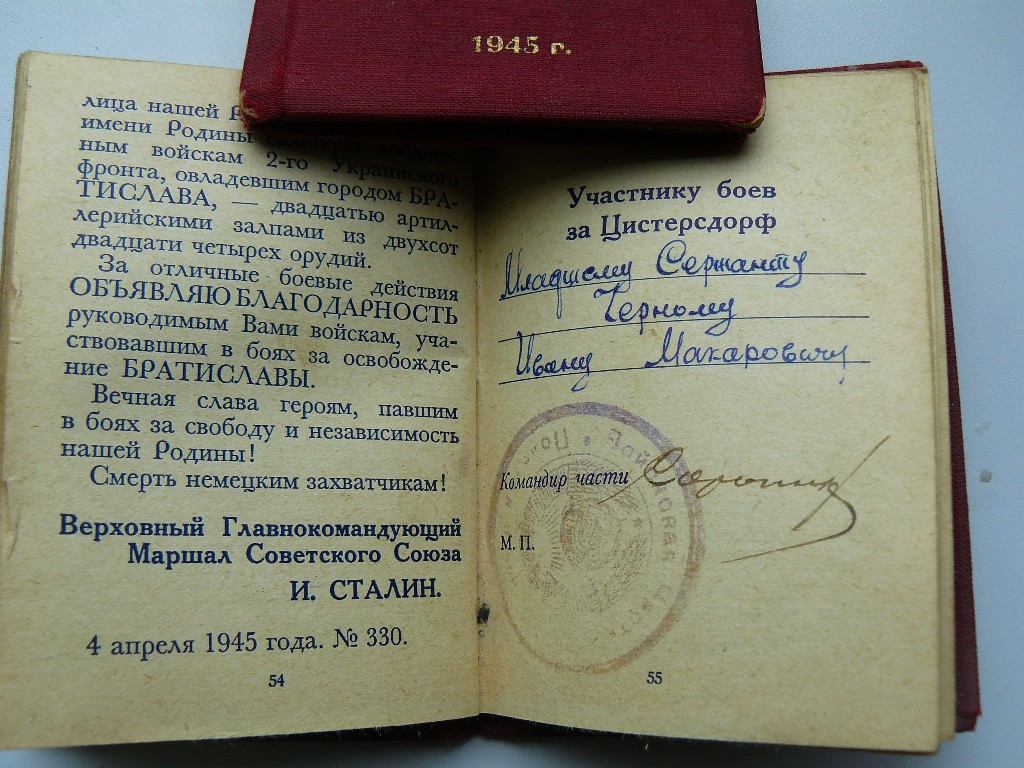 1945 г.
лица нашей
имени Родины
ным войскам 2-го Украинского
фронта, овладевшим городом БРА-
ТИСЛАВА, — двадцатью артил-
лерийскими залпами из двухсот
двадцати четырех орудий.
За отличные боевые действия
ОБЪЯВЛЯЮ БЛАГОДАРНОСТЬ
руководимым Вами войскам, уча-
ствовавшим в боях за освобожде-
ние БРАТИСЛАВЫ.
Вечная слава героям, павшим
в боях за свободу и независимость
нашей Родины!
Смерть немецким захватчикам!
Верховный Главнокомандующий
Маршал Советского Союза
И. СТАЛИН.
4 апреля 1945 года. № 330.
54
Участнику боев
за Цистерсдорф
Младшему Сержанту
Черному
Ивану Макаровичу
Командир части
М. П.
55